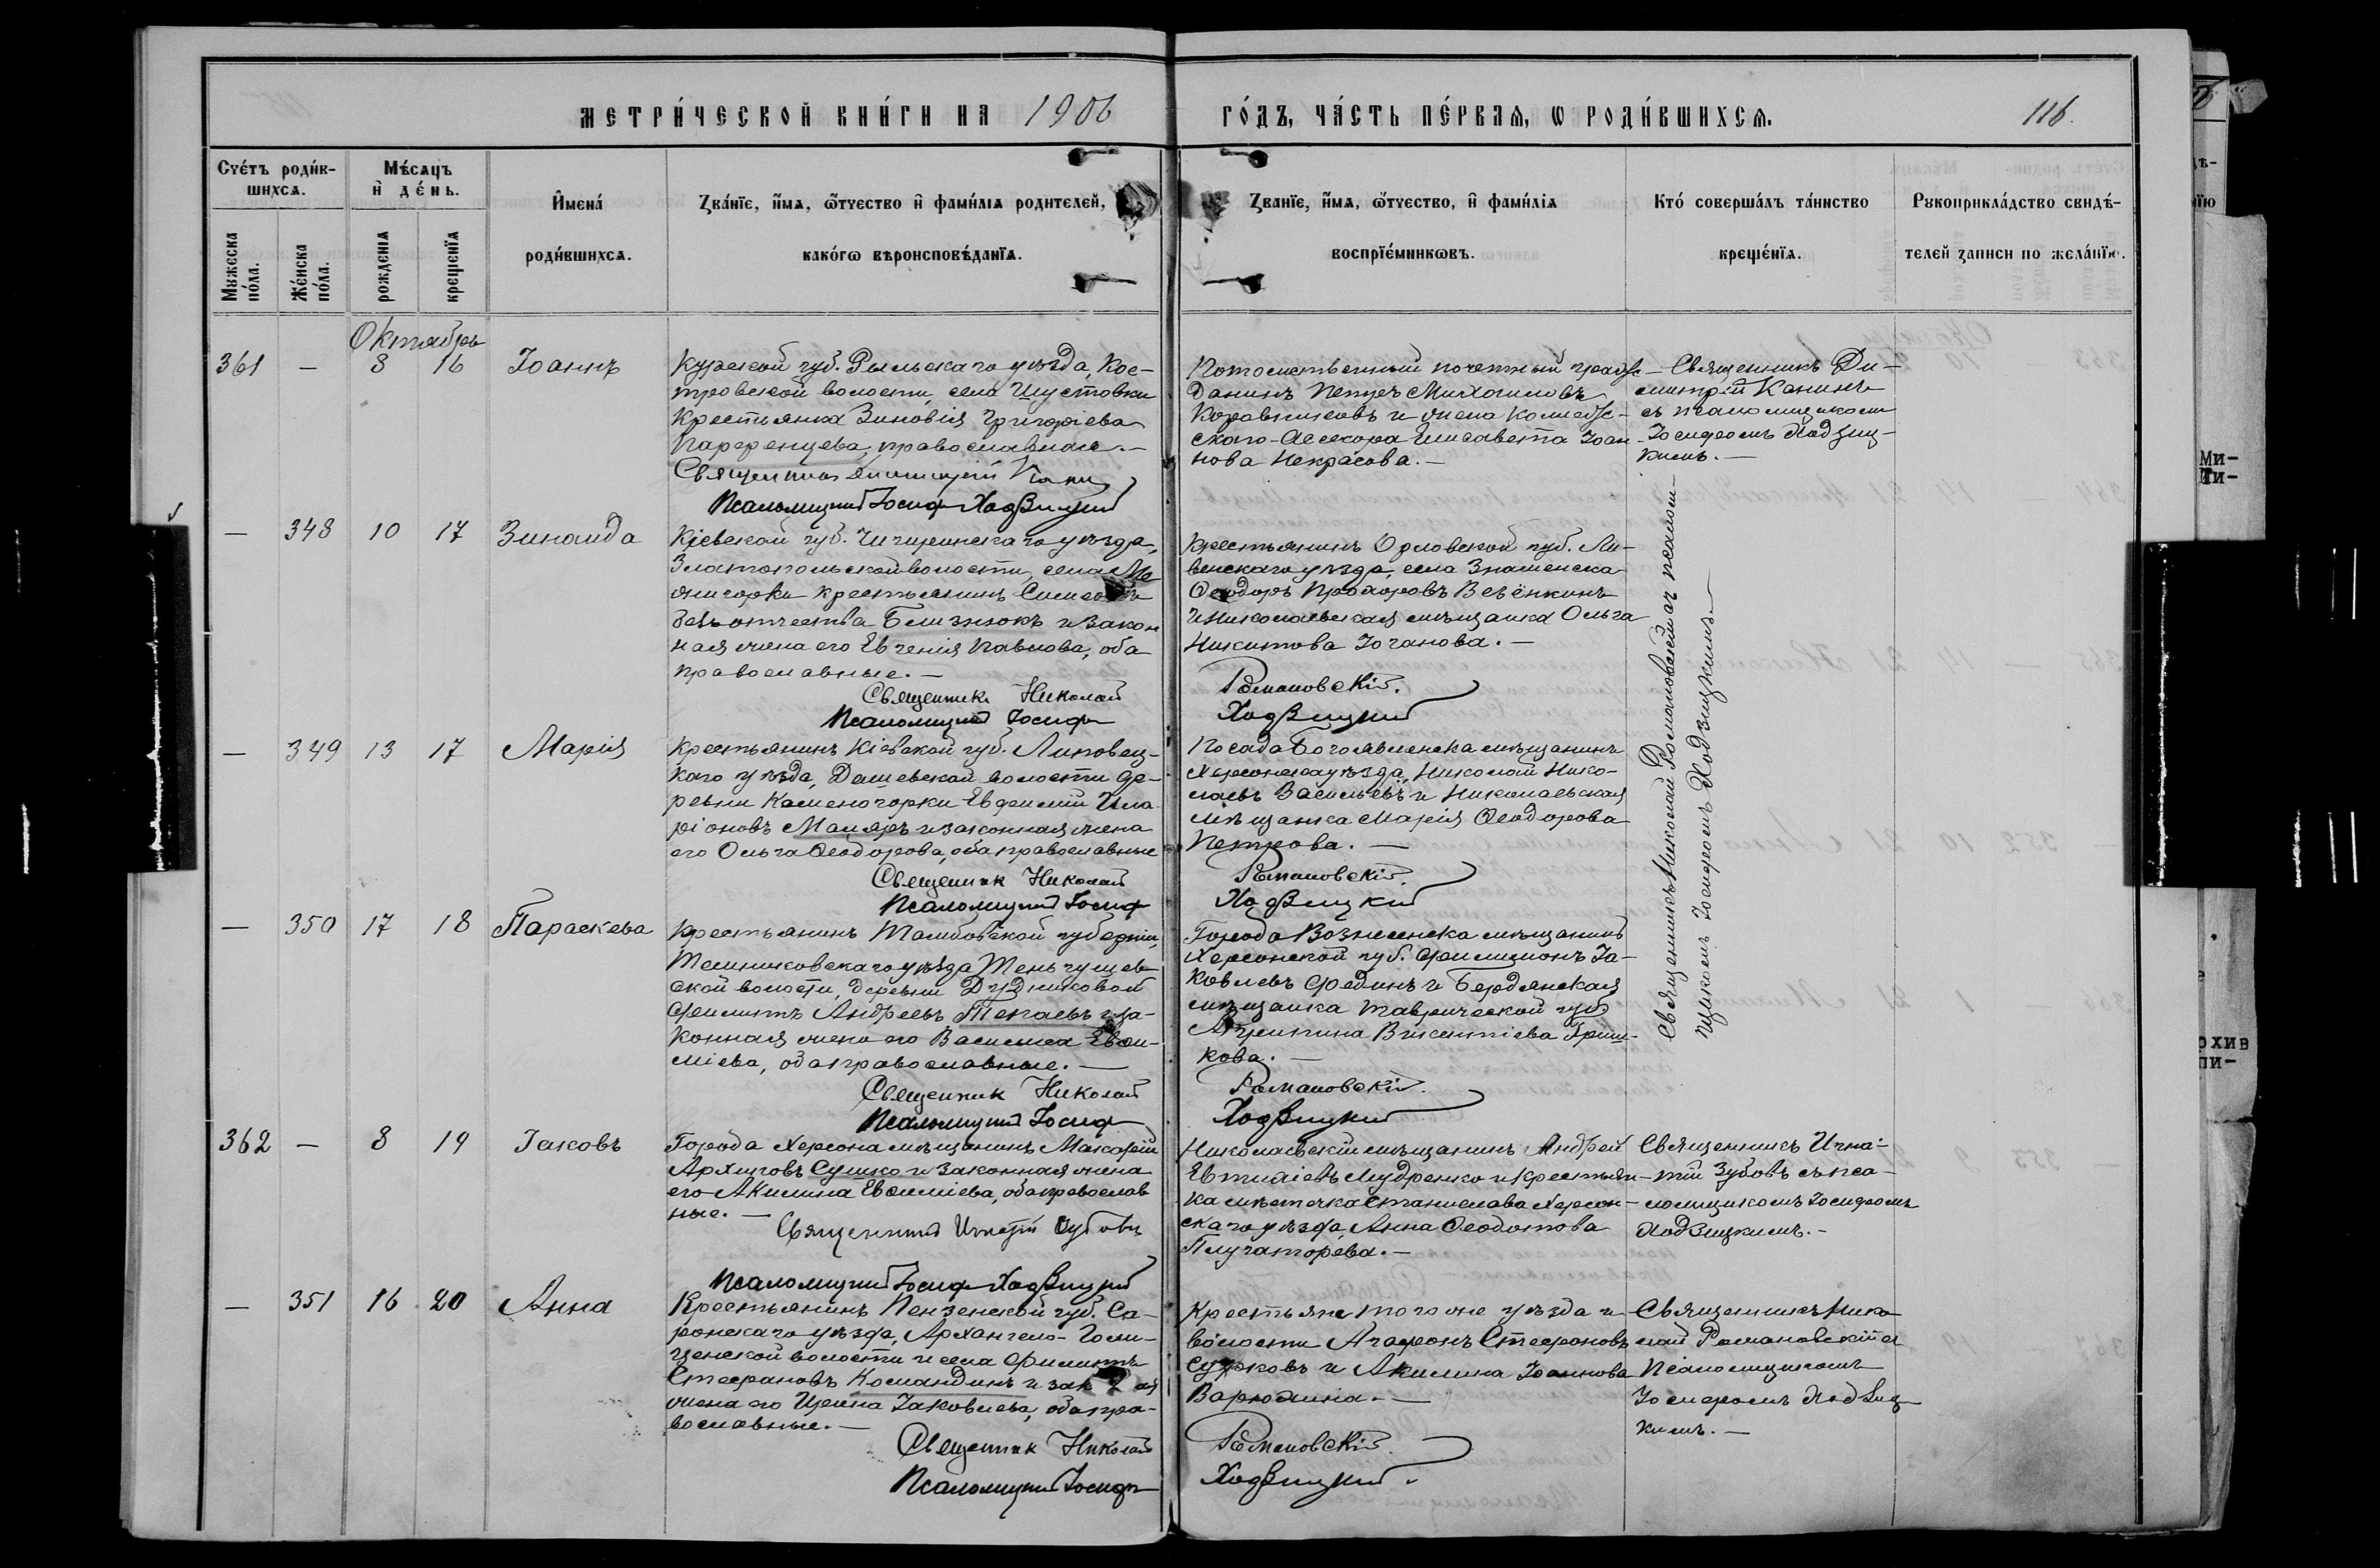 МЕТРИ́ЧЕСКОЙ КНИ́ГИ НА 1906 ГО́ДЪ, ЧА́СТЬ ПЕ́РВАЯ, Ѡ РОДИ́ВШИХСЯ. 116.
Счéтъ роди́в-
шихсѧ.
Мужеска
по́ла.
Же́нска
по́ла.
Мѣ́сѧцъ
и҆ де́нь.
рожденїѧ
крещенїѧ
И҆мена́
роди́вшихсѧ.
Зва́нїе, и҆́мѧ, ѻ҆́тчество и҆ фами́лїѧ родителей,
како́гѡ вѣроисповѣ́данїѧ.
Зва́нїе, и҆́мѧ, ѻ҆́тчество, и҆ фами́лїѧ
воспрїе́мникѡвъ.
Кто́ соверша́лъ та́инство
креще́нїѧ.
Рукоприкла́дство свидѣ́-
телей записи по жела́нїю.
Октябрь
361 — 8 16 Іоаннъ
Курской губ. Рыльскаго уѣзда, Кос-
тровской волости, села Шустовки
Крестьянка Зиновія Григоріева
Парфенцева, православная.—
Священникъ Димитрій Канинъ
Псаломщикъ Іосифъ Ходзицкій
Потомственный почетный граж-
данинъ Петръ Михаиловъ
и жена Коллеж-
скаго-Асесора Елисавета Іоан-
нова Некрасова.—
Священникъ Ди-
митрій Канинъ
съ псаломщикомъ
Іосифомъ Ходзиц-
кимъ.—
— 348 10 17 Зинаида
Кіевской губ. Чигиринскаго уѣзда,
Златопольской волости, села
крестьянинъ Симеонъ
безъ отчества Близнюкъ и закон
ная жена его Евгенія Павлова, оба
православные.—
Священникъ Николай
Псаломщикъ Іосифъ
Крестьянинъ Орловской губ. Ли-
венскаго уѣзда, села Знаменска
Ѳеодоръ Прохоровъ Везёнкинъ
и Николаевская мѣщанка Ольга
Никитова Юганова.—
Романовскій.
Ходзицкій
Священникъ Николай Романовскій съ псалом-
щикомъ Іосифомъ Ходзицкимъ.—
— 349 13 17 Марія
Крестьянинъ Кіевской губ. Липовец-
каго уѣзда, Дашевской волости де-
ревни Каменогорки Евфимій Ила
ріоновъ Маляръ и законная жена
его Ольга Ѳеодорова, оба православные
Священник Николай
Псаломщикъ Іосифъ
Посада Богоявленска мѣщанинъ
Херсонска уѣзда, Николай Нико-
лаевъ Васильевъ и Николаевская
мѣщанка Марія Ѳеодорова
Петрова.—
Романовскій.
Ходзицкій
— 350 17 18 Параскева
Крестьянинъ Тамбовской губерніи,
Темниковскаго уѣзда Теньгушев
ской волости, деревни Дудниковой
Филиппъ Андреевъ Текаевъ и за-
конная жена его Василиса Евфи-
міева, оба православные.—
Священник Николай
Псаломщикъ Іосифъ
Города Вознесенска мѣщанинъ
Херсонской губ. Филимонъ Іа-
ковлевъ Фединъ и Бердянская
мѣщанка Таврической губ.
Агрипина Викентіева Гриш-
кова.—
Романовскій.
Ходзицкій
362 — 8 19 Іаковъ
Города Херсона мѣщанинъ Макарій
Архиповъ Сушко и законная жена
его Акилина Евфиміева, оба православ
ные.—
Священникъ Игнатій Зубовъ
Псаломщикъ Іосифъ Ходзицкій
Николаевскій мѣщанинъ Андрей
Евтихіевъ Мудренко и крестьян-
ка мѣстечка Станислава Херсон-
скаго уѣзда, Анна Ѳеодотова
Плугаторева.—
Священникъ Игна-
тій Зубовъ съ пса-
ломщикомъ Іосифомъ
Ходзицкимъ.—
— 351 16 20 Анна
Крестьянинъ Пензенской губ. Са-
ранскаго уѣзда, Архангело-Голи-
цынской волости и села Филиппъ
Стефановъ Командинъ и зак ая
жена его Ирина Іаковлева, оба пра-
вославные.—
Священник Николай
Псаломщикъ Іосифъ
Крестьяне того же уѣзда и
волости Агафонъ Стефановъ
Сурковъ и Акилина Іоаннова
Варюхина.—
Романовскій.
Ходзицкій.
Священникъ Нико
лай Романовскій съ
Псаломщикомъ
Іосифомъ Ходзиц
кимъ.—